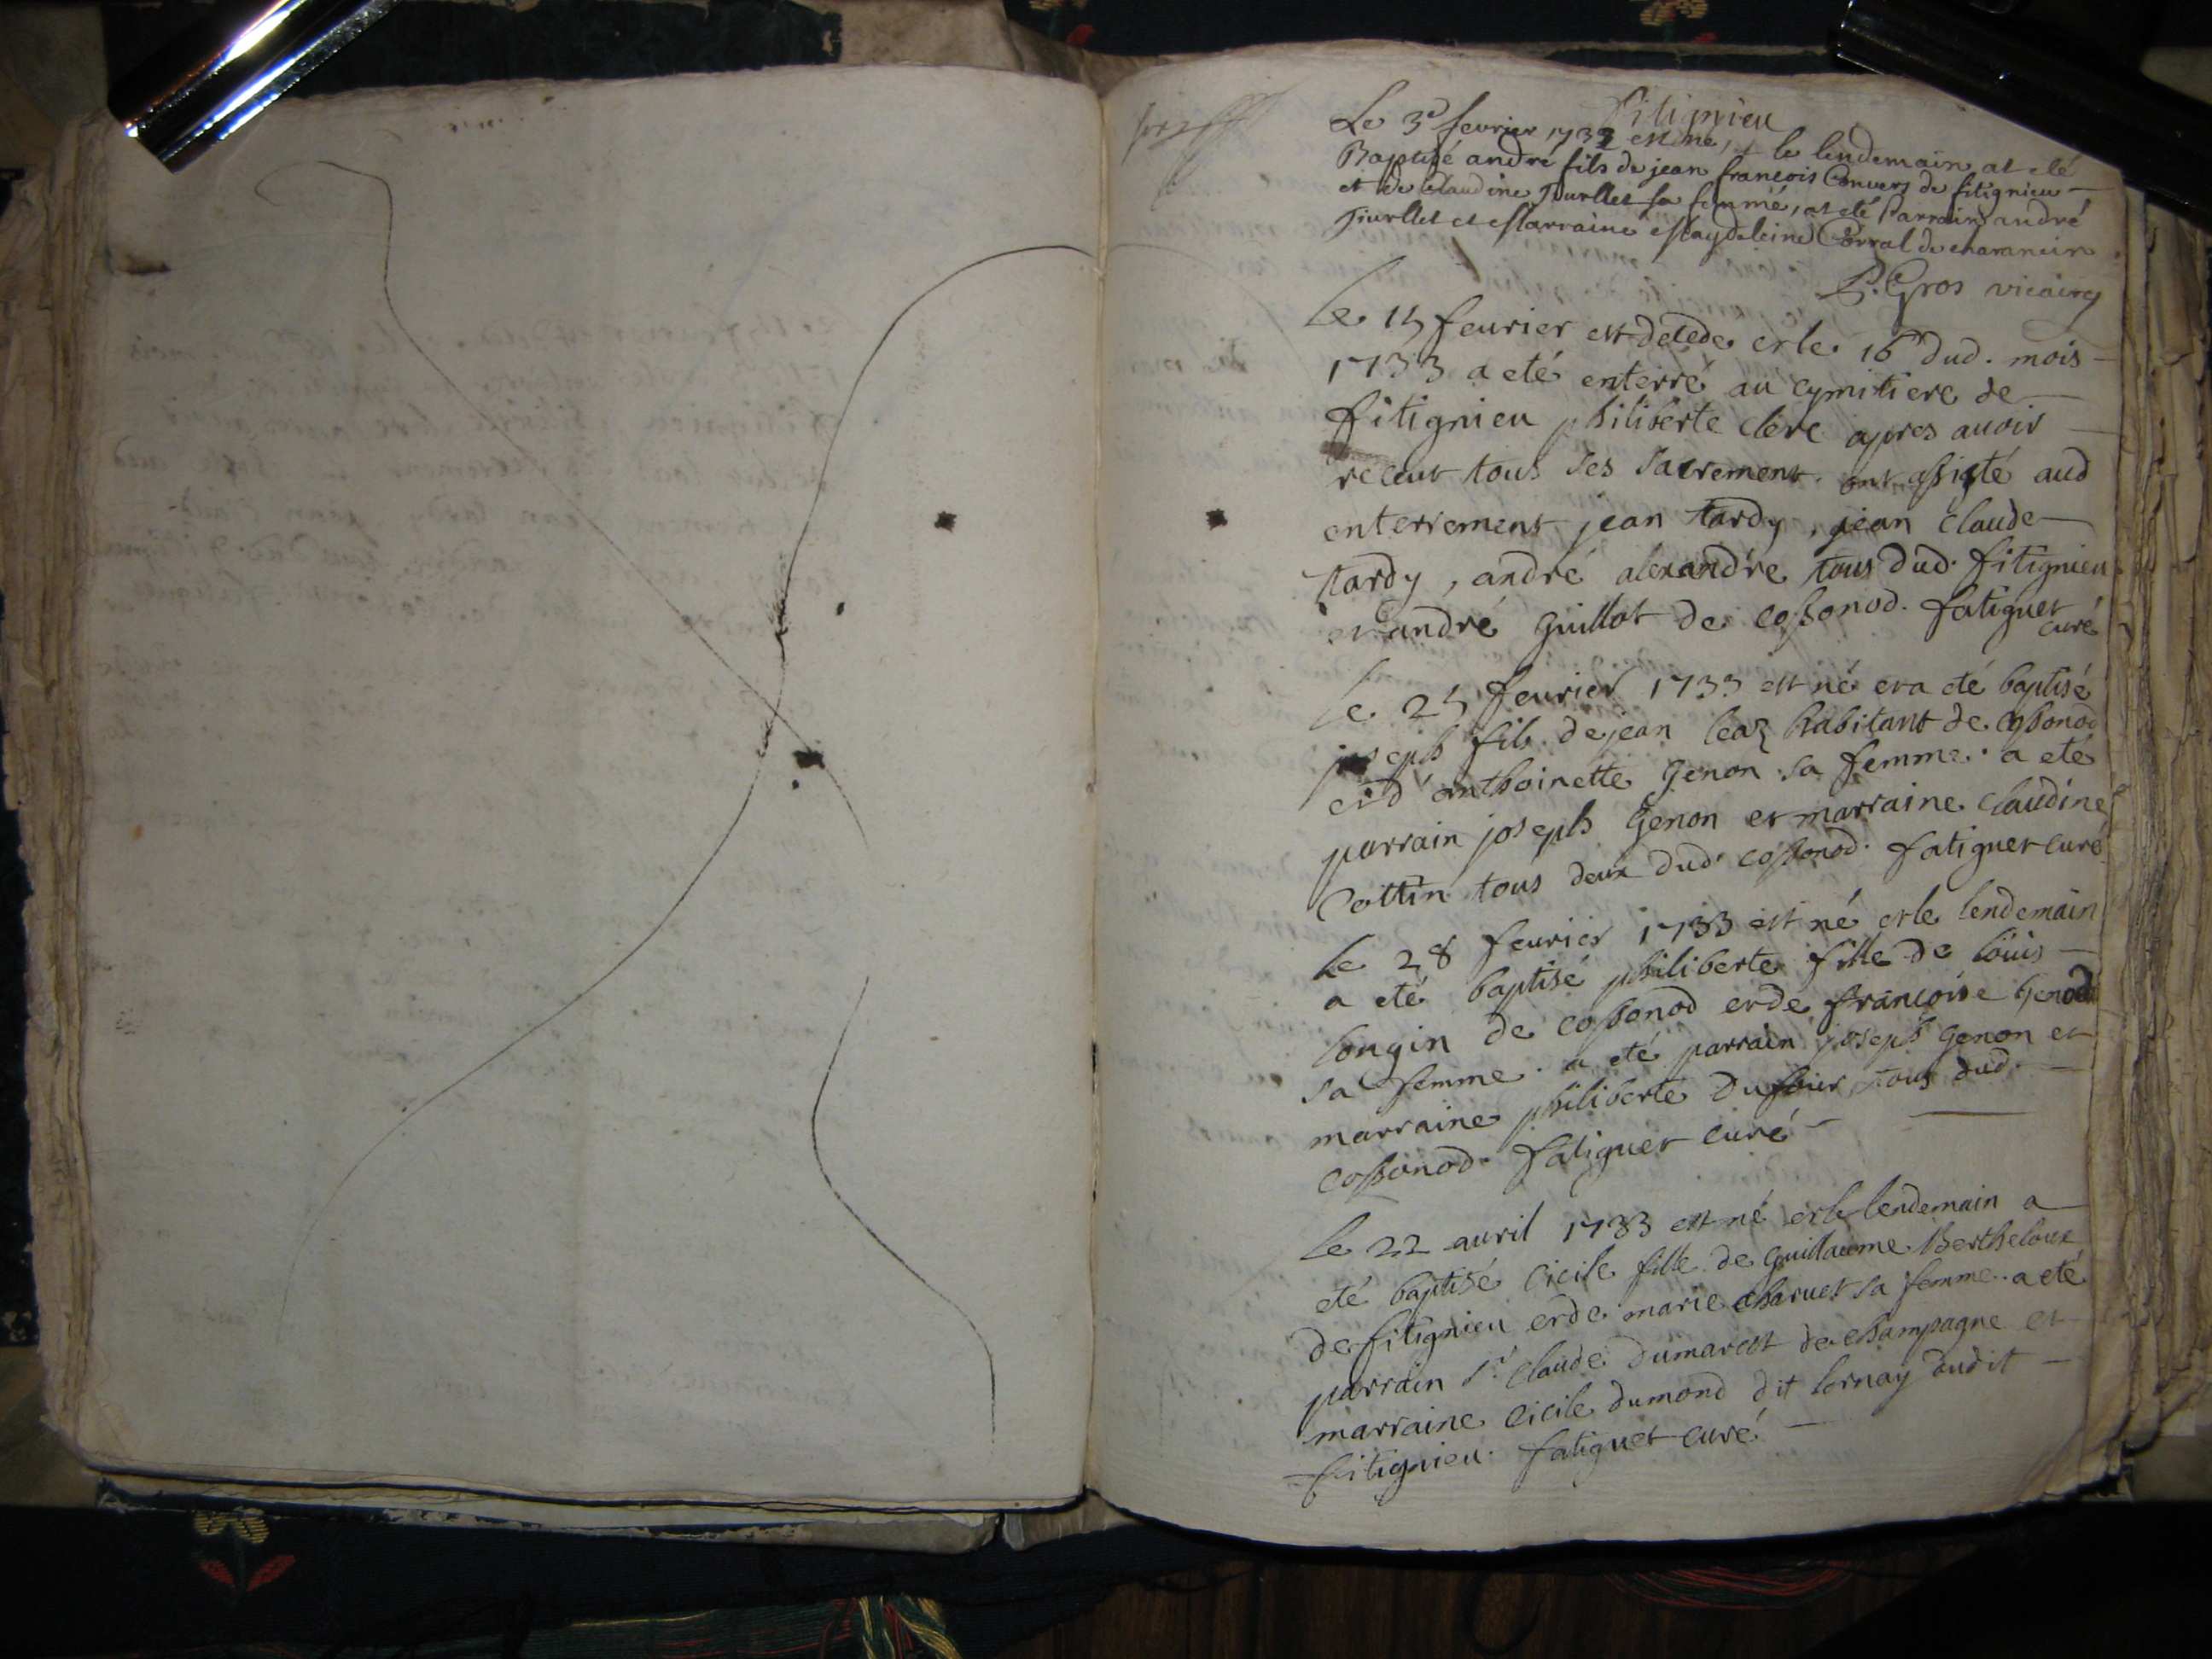 fitignieu
Le 3e feurier 1733 est né, et le lendemain at eté
Baptisé andré fils de jean francois Convers de fitignieu
et de Claudine Tiurllet sa femme, at eté Parrain andré
Tiurllet et Marraine Magdeleine Corral de charancin
P. Gros vicaire
Le 15 feurier est decede et le 16e dud. mois
1733 a eté enterré au cymitiere de
fitignieu philiberte clere apres auoir
receut tous ses sacrement. ont assisté aud
enterrement jean tardy, jean Claude
tardy, andré alexandre tous dud. fitignieu
et andré Guillot de cossonod. fatiguet
curé
Le 25 feurier 1733 est né et a eté baptisé
joseph fils de jean leaz habitant de cossonod
et d'anthoinette Genon sa femme. a eté
parrain joseph Genon et marraine Claudine
Cottin tous deux dud. cossonod. fatiguet curé
Le 28 feurier 1733 est né et le lendemain
a eté baptisé philiberte fille de loüis
longin de cossonod et de françoise Genod
sa femme. a eté parrain joseph Genon et
marraine philiberte Dufour tous dud.
cossonod. fatiguet curé
Le 22 auril 1733 est né et le lendemain a
eté baptisé Cicile fille de Guillaume Bertheloux
de fitignieu et de marie charuet sa femme. a eté
parrain Sr. Claude Dumarest de champagne et
marraine Cicile dumond dit lornay dudit
fitignieu. fatiguet curé